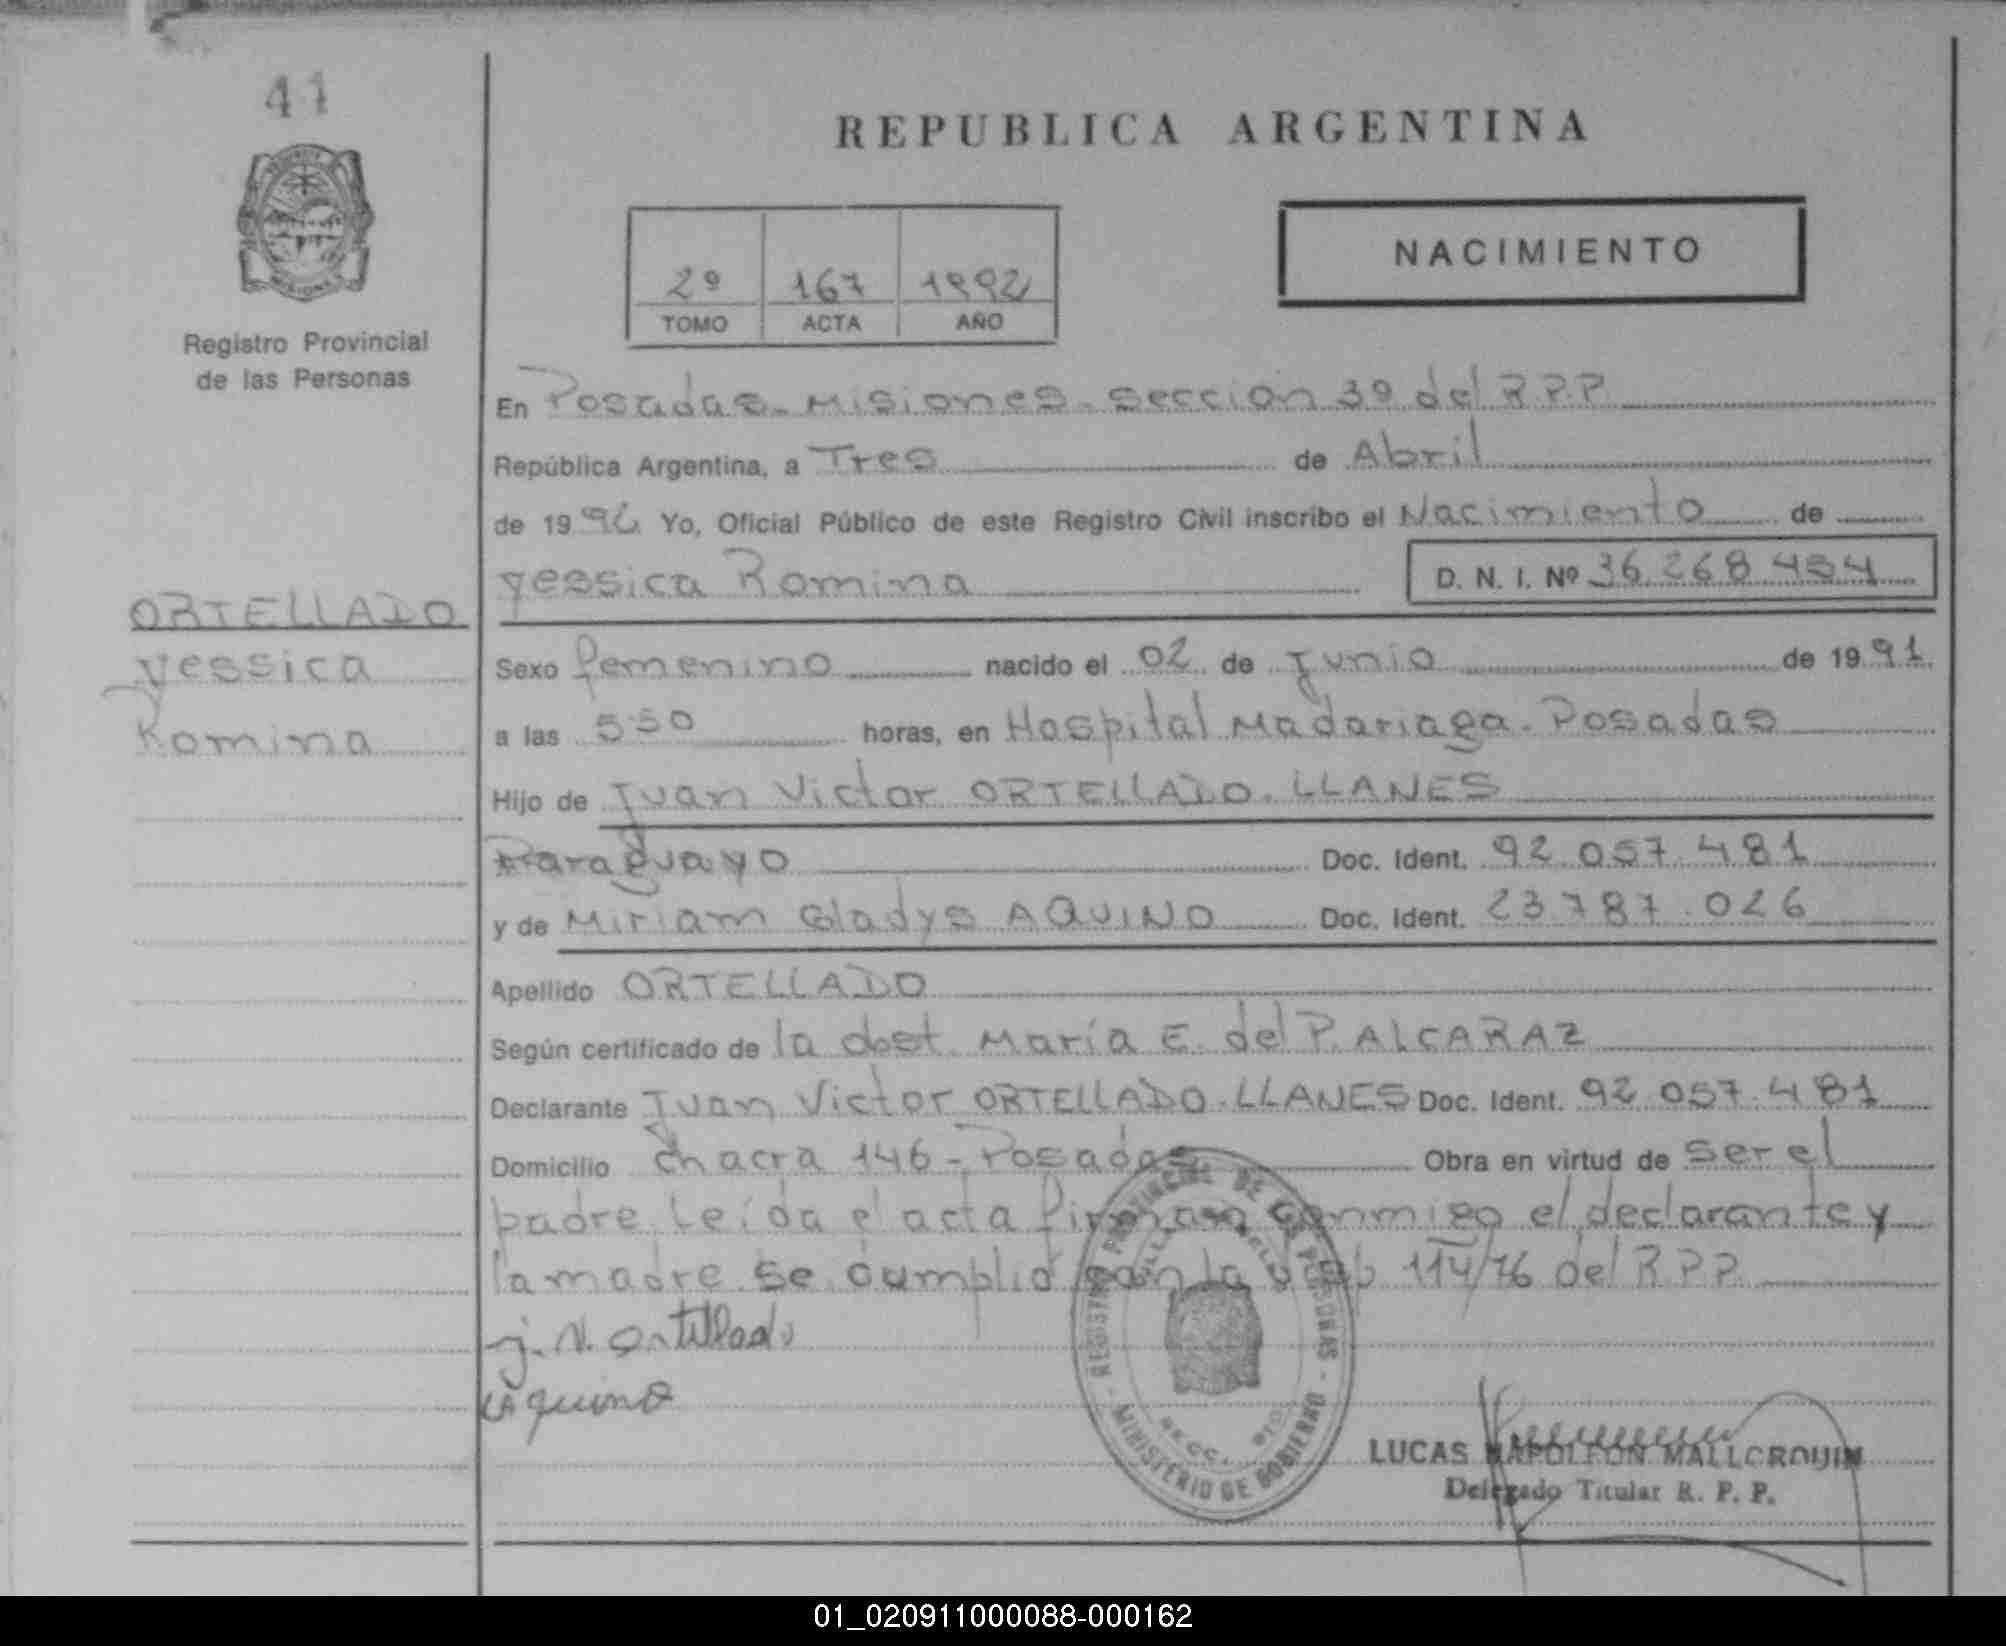 41
REPUBLICA ARGENTINA
2º 167 1992
TOMO ACTA AÑO
NACIMIENTO
Registro Provincial
de las Personas
En Posadas - Misiones - seccion 3º del R.P.P
República Argentina, a Tres de Abril
de 1992 Yo, Oficial Público de este Registro Civil inscribo el Nacimiento de
Yessica Romina D. N. I. Nº 36.268.454
ORTELLADO
Yessica
Romina
Sexo femenino nacido el 02 de Junio de 1991
a las 5:50 horas, en Hospital Madariaga - Posadas
Hijo de Juan Victor ORTELLADO - LLANES
Paraguayo Doc. Ident. 92.057.481
y de Miriam Gladys AQUINO Doc. Ident. 23.787.026
Apellido ORTELLADO
Según certificado de la obst. María E. del P. ALCARAZ
Declarante Juan Victor ORTELLADO - LLANES Doc. Ident. 92.057.481
Domicilio Chacra 146 - Posadas Obra en virtud de ser el
padre. Leída el acta firman conmigo el declarante y
la madre. Se cumplió con la 114/76 del R.P.P.
J. V. Ortellado
Aquino
REGISTRO PROVINCIAL DE LAS PERSONAS
MINISTERIO DE GOBIERNO
LUCAS NAPOLEON MALLORQUIN
Delegado Titular R. P. P.
01_020911000088-000162